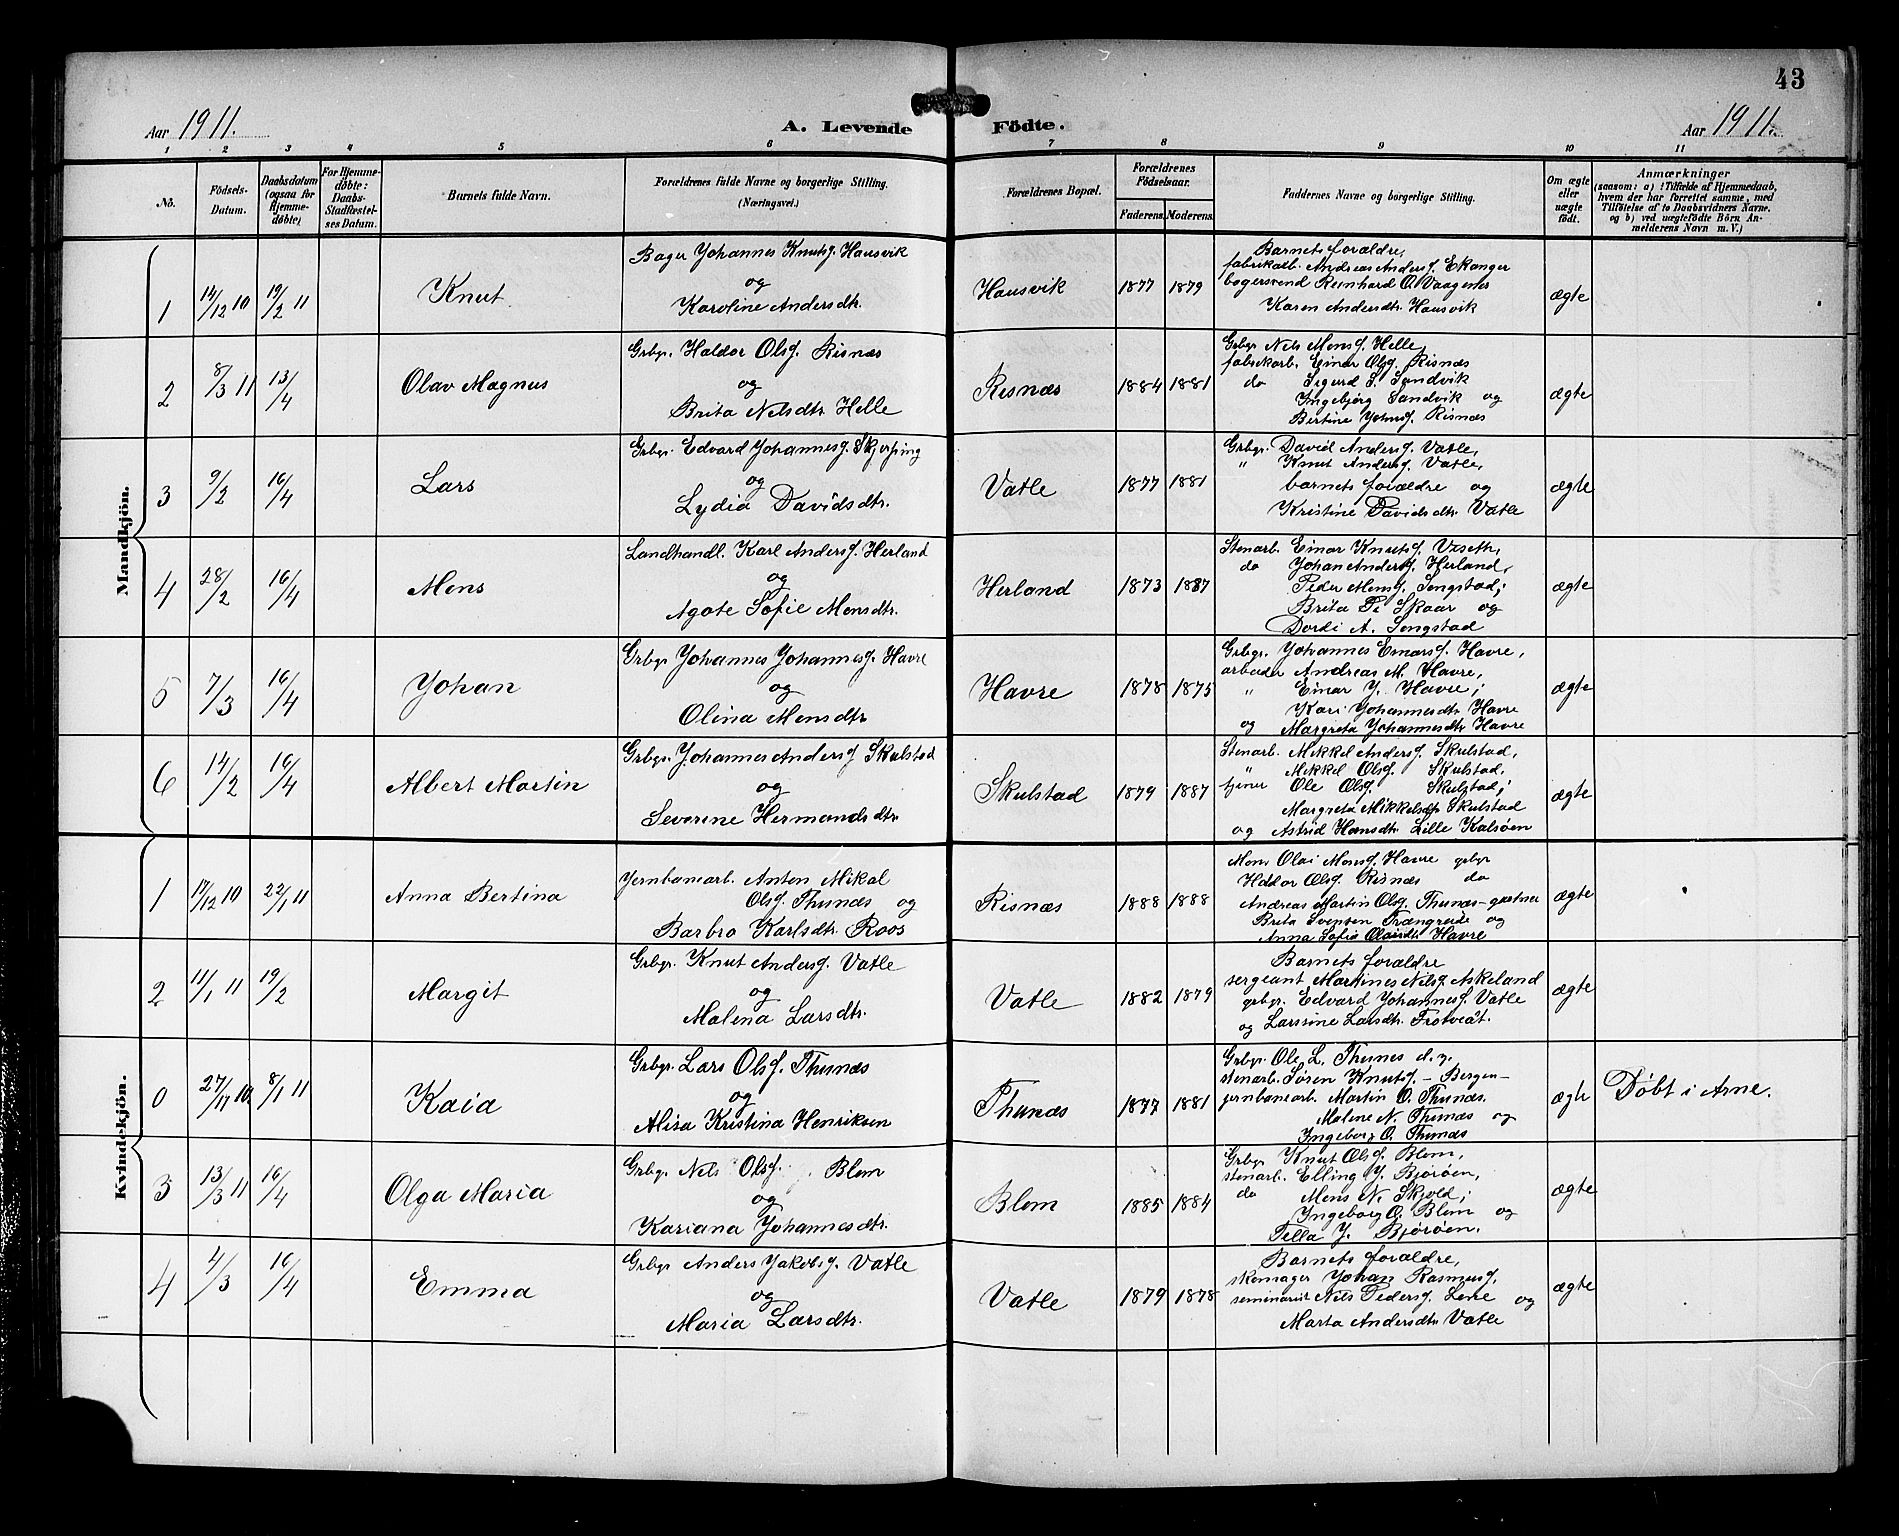 43
Aar 1911. A. Levende Födte. Aar 1911.
1 2 3 4 5 6 7 8 9 10 11
No. Födsels-Datum. Daabsdatum (ogsaa for Hjemmedøbte). For Hjemmedøbte: Daabs-Stadfæstelses Datum. Barnets fulde Navn. Forældrenes fulde Navne og borgerlige Stilling. (Næringsvei.) Forældrenes Bopæl. Forældrenes Födselsaar. Faderens. Moderens. Faddernes Navne og borgerlige Stilling. Om ægte eller uægte födt. Anmærkninger
(saasom: a) i Tilfælde af Hjemmedaab, hvem der har forrettet samme, med Tilföielse af to Daabsvidners Navne, og b) ved uægtefödte Börn Anmelderens Navn m. V.)
Mandkjön.
1 14/12 10 19/2 11 Knut.
Bager Johannes Knutsf. Hausvik
og
Karoline Andersdtr.
Hausvik 1877 1879
Barnets forældre,
fabrikarb. Andreas Andersf. Ekanger
bagersvend Reinhard O. Vaagenes
Karen Andersdtr. Hausvik
ægte
2 8/3 11 13/4 Olav Magnus
Grbgr. Haldor Olsf. Risnæs
og
Brita Nelsdtr Helle
Risnæs 1884 1881
Grbgr. Nels Monsf. Helle,
fabrikarb. Einar Olsf. Risnæs
do Sigurd S. Sandvik
Ingebjørg Sandvik og
Bertine Johnsf. Risnæs
ægte
3 9/2 16/4 Lars
Grbgr. Edvard Johannesf. Skjerping
og
Lydia Davidsdtr.
Vatle 1877 1881
Grbgr. David Andersf. Vatle,
" Knut Andersf. Vatle,
barnets forældre og
Kristine Davidsdtr Vatle
ægte
4 28/2 16/4 Mons
Landhandl. Karl Andersf. Herland
og
Agate Sofie Monsdtr.
Herland 1873 1887
Stenarb. Einar Knutsf. Vaseth,
do Johan Andersf. Herland,
Peder Monsf. Songstad;
Brita P. Skaar og
Dordi A. Songstad
ægte
5 7/3 16/4 Johan
Grbgr. Johannes Johannesf. Havre
og
Olina Monsdtr
Havre 1878 1875
Grbgr. Johannes Einarsf. Havre,
arbeider Andreas M. Havre,
" Einar J. Havre;
Kari Johannesdtr Havre
og Margreta Johannesdtr Havre
ægte
6 14/2 16/4 Albert Martin
Grbgr. Johannes Andersf Skulstad
og
Severine Hermandsdtr
Skulstad 1879 1887
Stenarb. Mikkel Andersf. Skulstad,
" Mikkel Olsf. Skulstad,
tjener Ole Olsf. Skulstad;
Margreta Mikkelsdtr Skulstad
og Astrid Hansdtr Lille Kalsöen
ægte
Kvindekjön.
1 17/12 10 22/1 11 Anna Bertina
Jernbanearb. Anton Mikal
Olsf. Thunæs og
Barbro Karlsdtr. Roos
Risnæs 1888 1888
Mons Olai Monsf. Havre grbgr
Haldor Olsf. Risnæs do
Andreas Martin Olsf. Thunæs - gartner
Brita Svensen Trængreide og
Anna Sofia Olaisdtr Havre
ægte
2 11/1 11 19/2 Margit
Grbgr. Knut Andersf. Vatle
og
Malena Larsdtr.
Vatle 1882 1879
Barnets forældre
sergeant Martines Nilsf Askeland
grbgr. Edvard Johannesf. Vatle
og Larssine Larsdtr. Trotveit.
ægte
0 27/11 10 8/1 11 Kaia
Grbgr. Lars Olsf. Thunæs
og
Alisa Kristina Henriksen
Thunæs 1877 1881
Grbgr. Ole L. Thunes d. y.
stenarb. Sören Knutsf. - Bergen -
jernbanearb. Martin O. Thunæs.
Malene N. Thunæs og
Ingeborg O. Thunæs
ægte Döbt i Arne.
3 13/3 11 16/4 Olga Maria
Grbgr. Nels Olsf. Blom
og
Kariana Johannesdtr.
Blom 1885 1884
Grbgr Knut Olsf. Blom,
stenarb. Elling J. Björöen,
do Mons N. Skjold;
Ingeborg O. Blom og
Tella J. Björöen.
ægte
4 4/3 16/4 Emma
Grbgr Anders Jakobsf. Vatle
og
Maria Larsdtr.
Vatle 1879 1878
Barnets forældre,
skomager Johan Rasmusf.
seminarist Nils Pedersf. Lone og
Marta Andersdtr Vatle
ægte